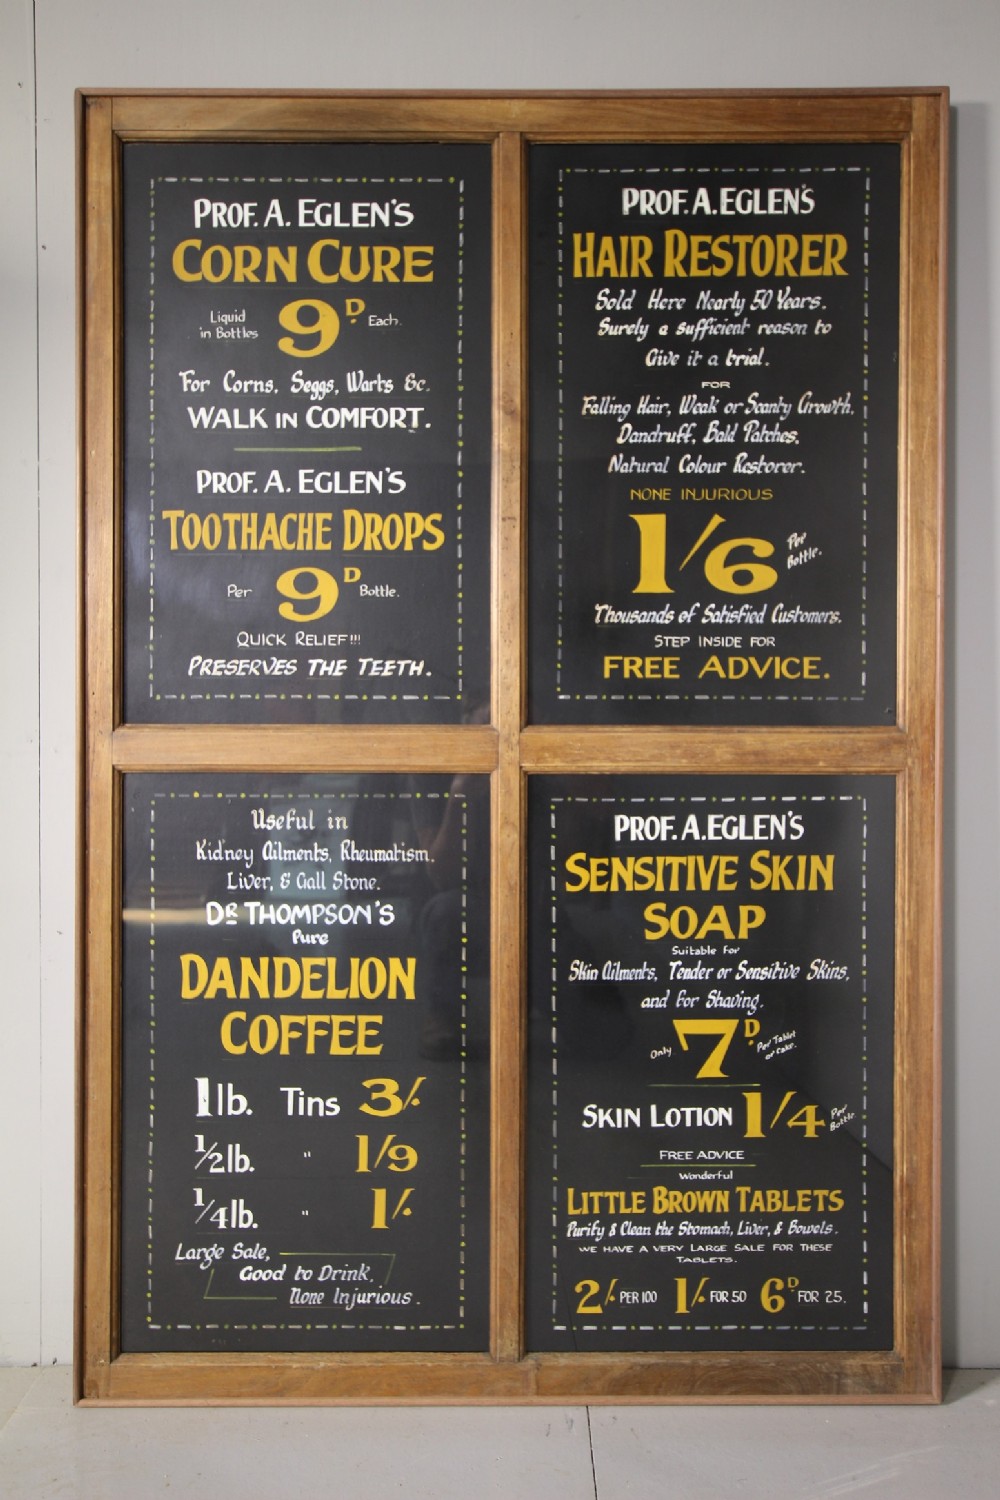 PROF. A. EGLEN'S
CORN CURE
Liquid in Bottles 9D. Each.
For Corns, Seggs, Warts &c.
WALK IN COMFORT.
PROF. A. EGLEN'S
TOOTHACHE DROPS
Per 9D Bottle.
QUICK RELIEF!!!
PRESERVES THE TEETH.
PROF. A. EGLEN'S
HAIR RESTORER
Sold Here Nearly 50 Years.
Surely a sufficient reason to
Give it a trial.
FOR
Falling Hair, Weak or Scanty Growth,
Dandruff, Bald Patches,
Natural Colour Restorer.
NONE INJURIOUS
1/6 Per Bottle.
Thousands of Satisfied Customers.
STEP INSIDE FOR
FREE ADVICE.
Useful in
Kidney Ailments, Rheumatism,
Liver, & Gall Stone.
DR THOMPSON'S
Pure
DANDELION
COFFEE
1 lb. Tins 3/-
1/2 lb. " 1/9
1/4 lb. " 1/-
Large Sale,
Good to Drink,
None Injurious.
PROF. A. EGLEN'S
SENSITIVE SKIN
SOAP
Suitable for
Skin Ailments, Tender or Sensitive Skins,
and for Shaving.
Only 7D. Per Tablet or Cake.
SKIN LOTION 1/4 Per Bottle
FREE ADVICE
Wonderful
LITTLE BROWN TABLETS
Purify & Clean the Stomach, Liver, & Bowels.
WE HAVE A VERY LARGE SALE FOR THESE
TABLETS.
2/- PER 100 1/- FOR 50 6D FOR 25.